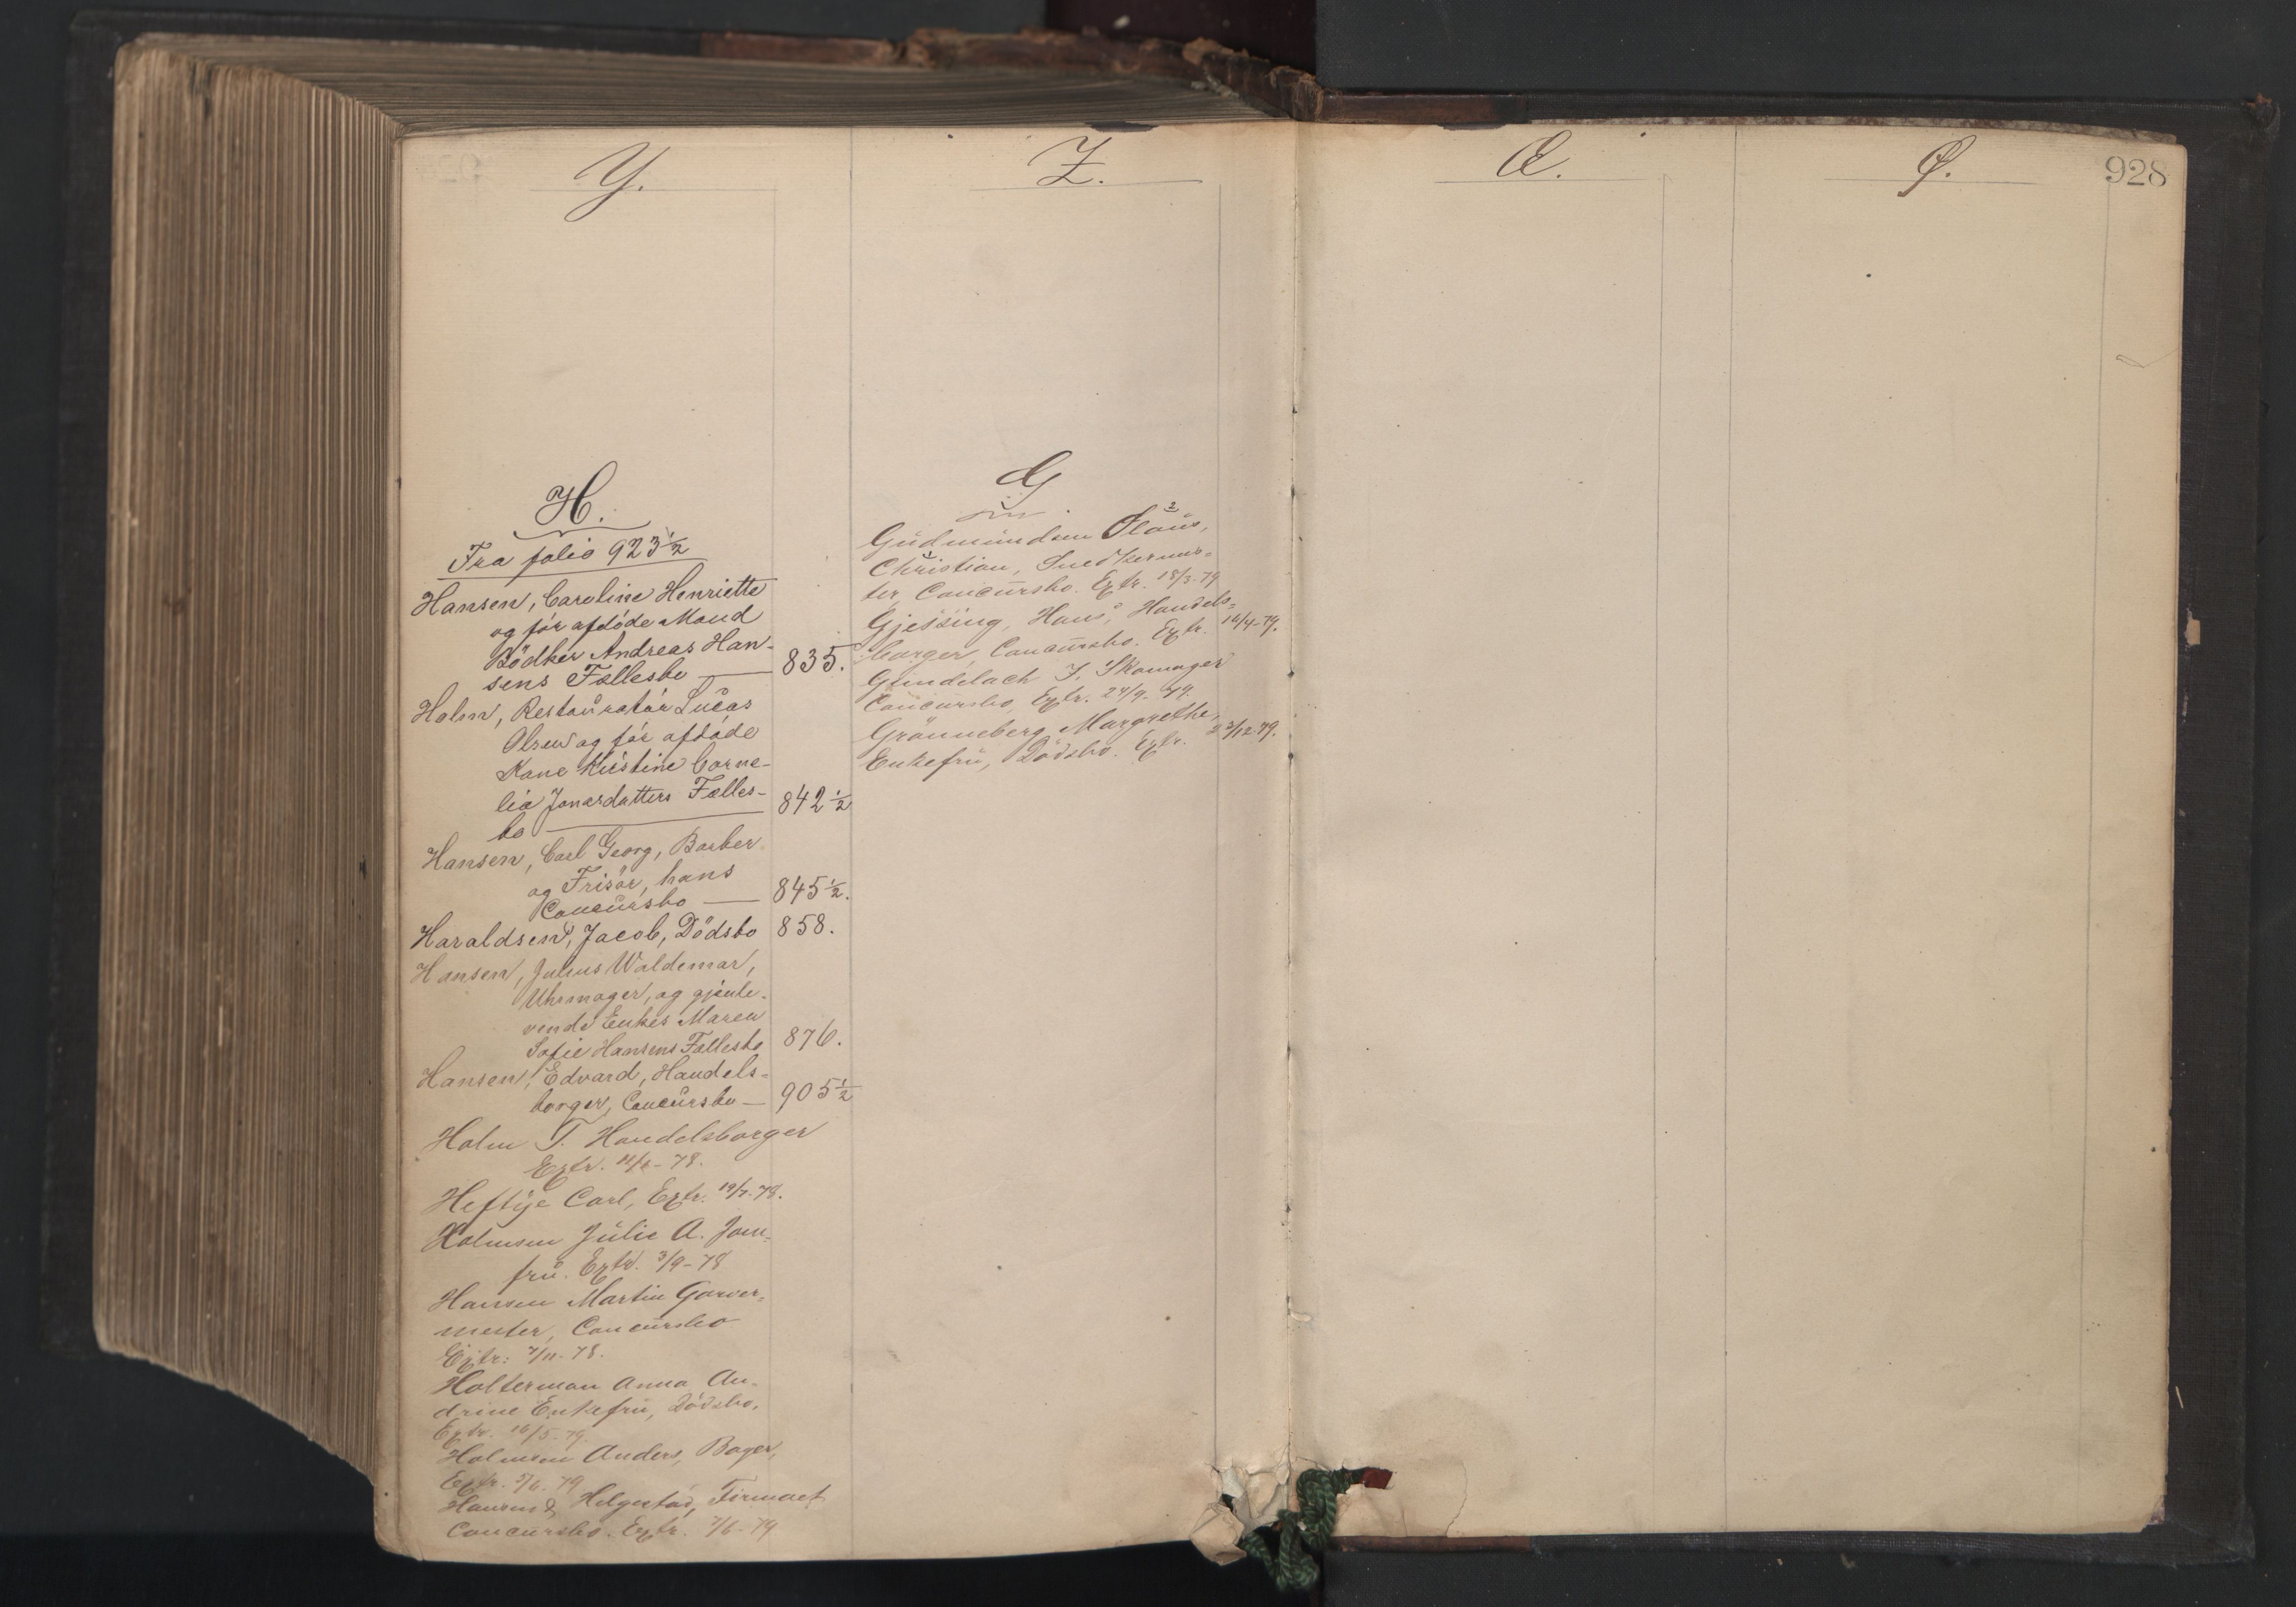 Y.
H.
Fra folio 923 1/2
Hansen, Caroline Henriette
og før afdøde Mand
Bødker Andreas Han-
sens Fællesbo — 835.
Holm, Restauratør Lucas
Olsen og før afdøde
Kone Kirstine Corne-
lia Jonasdatters Fælles-
bo — 842 1/2
Hansen, Carl Georg, Barber
og Frisør, hans
Concursbo — 845 1/2.
Haraldsen, Jacob, Dødsbo 858.
Hansen, Julius Waldemar,
Uhrmager, og gjenle-
vende Enkes Maren
Sofie Hansens Fællesbo 876.
Hansen, Edvard, Handels-
borger, Concursbo — 905 1/2
Holm T. Handelsborger
Extr. 78.
Heftye Carl, Extr. 19/7-78.
Holmsen Julie A. Jom-
fru. Extr. 3/9-78
Hansen Martin Garver-
mester, Concursbo
Extr: 7/11-78.
Holterman Anna An-
drine Enkefru, Dødsbo,
Extr. 16/5-79.
Holmsen Anders, Bager,
Extr. 5/6-79
Hansen & Helgestad, Firmaet
Concursbo. Extr. 7/6-79
Z.
G
Gudmundsen 2 Claus,
1 Christian, Snedkermes-
ter Concursbo. Extr. 18/3-79
Gjessing, Hans, Handels-
borger, Concursbo. Extr. 16/4-79.
Gundelach J. Skomager
Concursbo, Extr. 24/9-79.
Grønneberg Margrethe,
Enkefru, Dødsbo. Extr. 23/12-79.
Æ.
Ø.
928